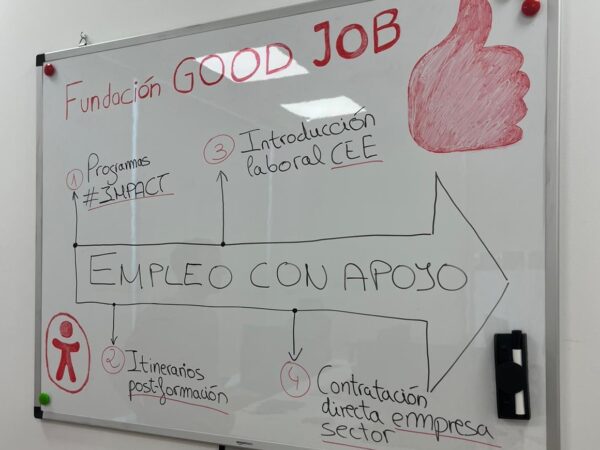 Fundación GOOD JOB
① Programas
#3MPACT
③ Introducción
laboral CEE
EMPLEO CON APOYO
② Itinerarios
post-formación
④ Contratación
directa empresa
sector